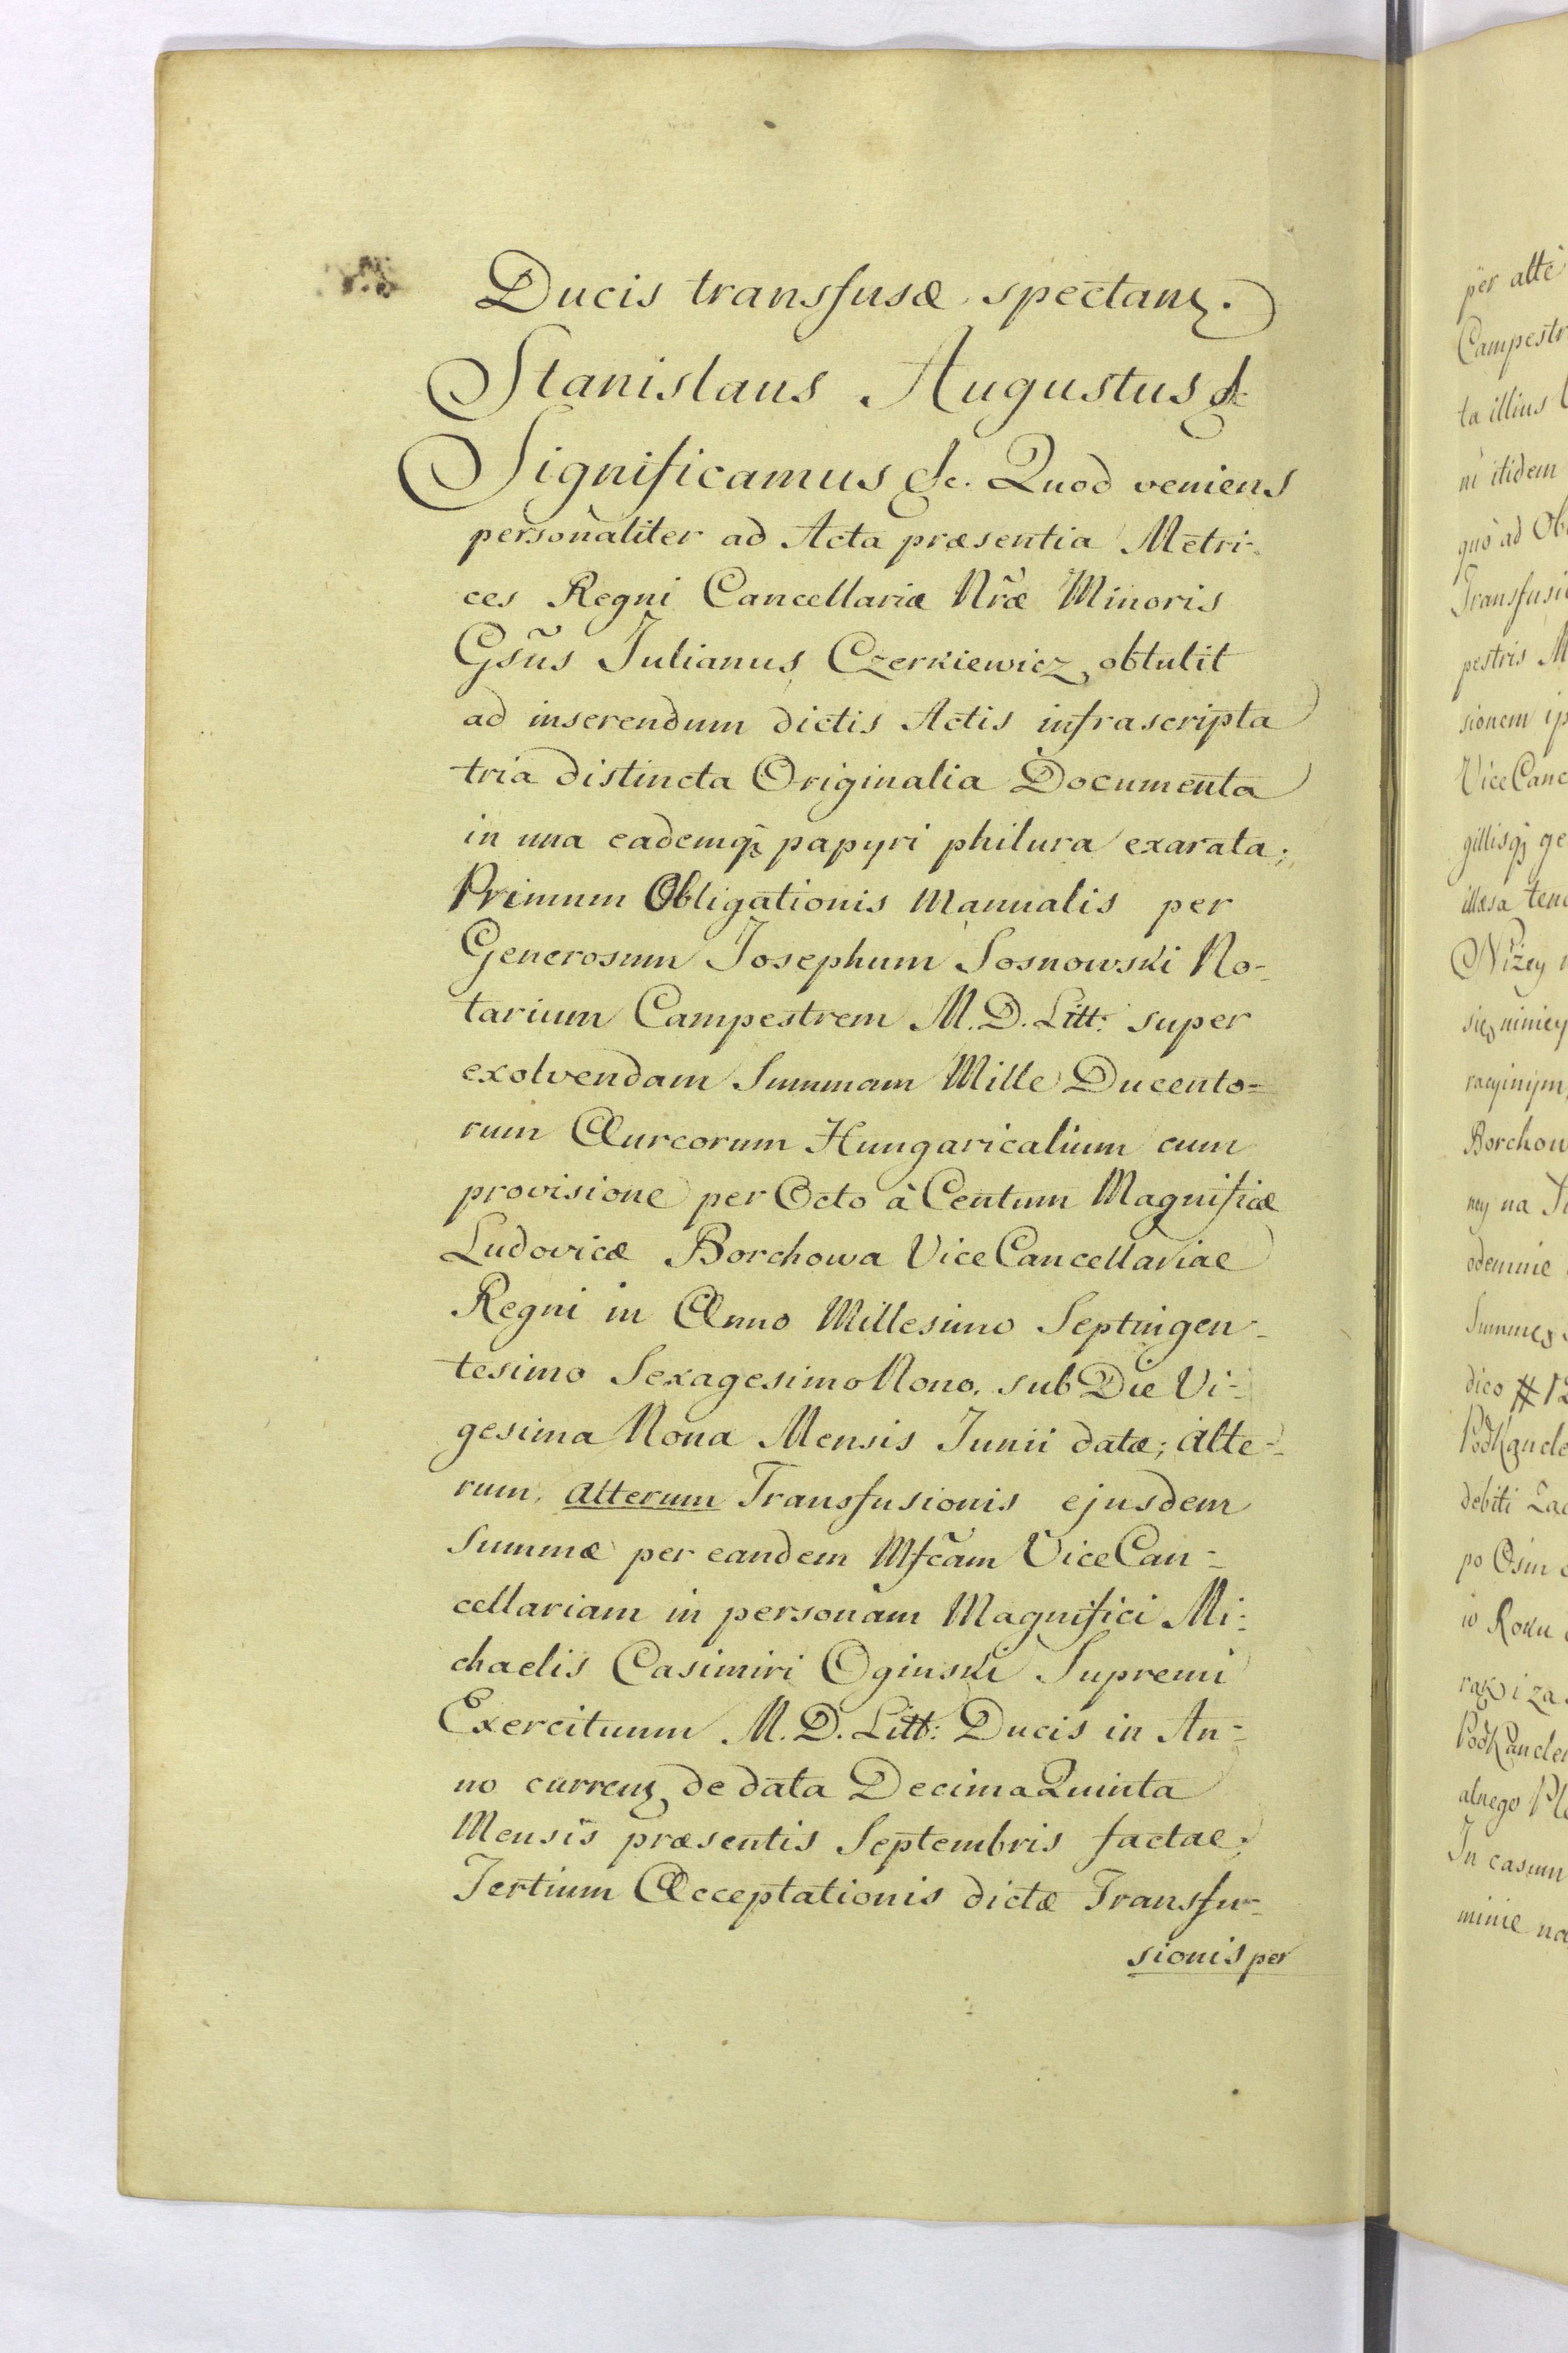 Ducis transfusæ spectanꝫ.
Stanislaus Augustus &c
Significamus &c. Quod veniens
personaliter ad Acta præsentia Metri-
ces Regni Cancellariæ Nr̃æ Minoris
Gsũs Julianus Czerkiewicz, obtulit
ad inserendum dictis Actis infrascripta
tria distincta Originalia Documenta
in una eademqꝫ papyri philura exarata;
Primum Obligationis Manualis per
Generosum Josephum Sosnowski No-
tarium Campestrem M. D. Litt: super
exolvendam Summam Mille Ducento-
rum Aureorum Hungaricalium cum
provisione per Octo à Centum Magnificæ
Ludovicæ Borchowa Vice Cancellariae
Regni in Anno Millesimo Septingen-
tesimo Sexagesimo Nono, sub Die Vi-
gesima Nona Mensis Junii datæ; alte-
rum, alterum Transfusionis ejusdem
Summæ per eandem Mfcãm Vice Can-
cellariam in personam Magnifici Mi-
chaelis Casimiri Oginski Supremi
Exercituum M. D. Litt: Ducis in An-
no currenꝫ de data Decima Quinta
Mensis præsentis Septembris factae;
Tertium Acceptationis dictæ Transfu-
sionis per
per alte
Campestr
ta illius
ni itidem
quò ad Ob
Transfusi
pestris M
sionem ip
Vice Canc
gillisqꝫ ge
illæsa teno
Niżey
się niniey
racyinym
Borchow
ney na
odemnie
Summę
dico # 12
Podkancle
debiti za
po Osm
w Roku
rąk i za
Podkancler
alnego
In casum
minie na